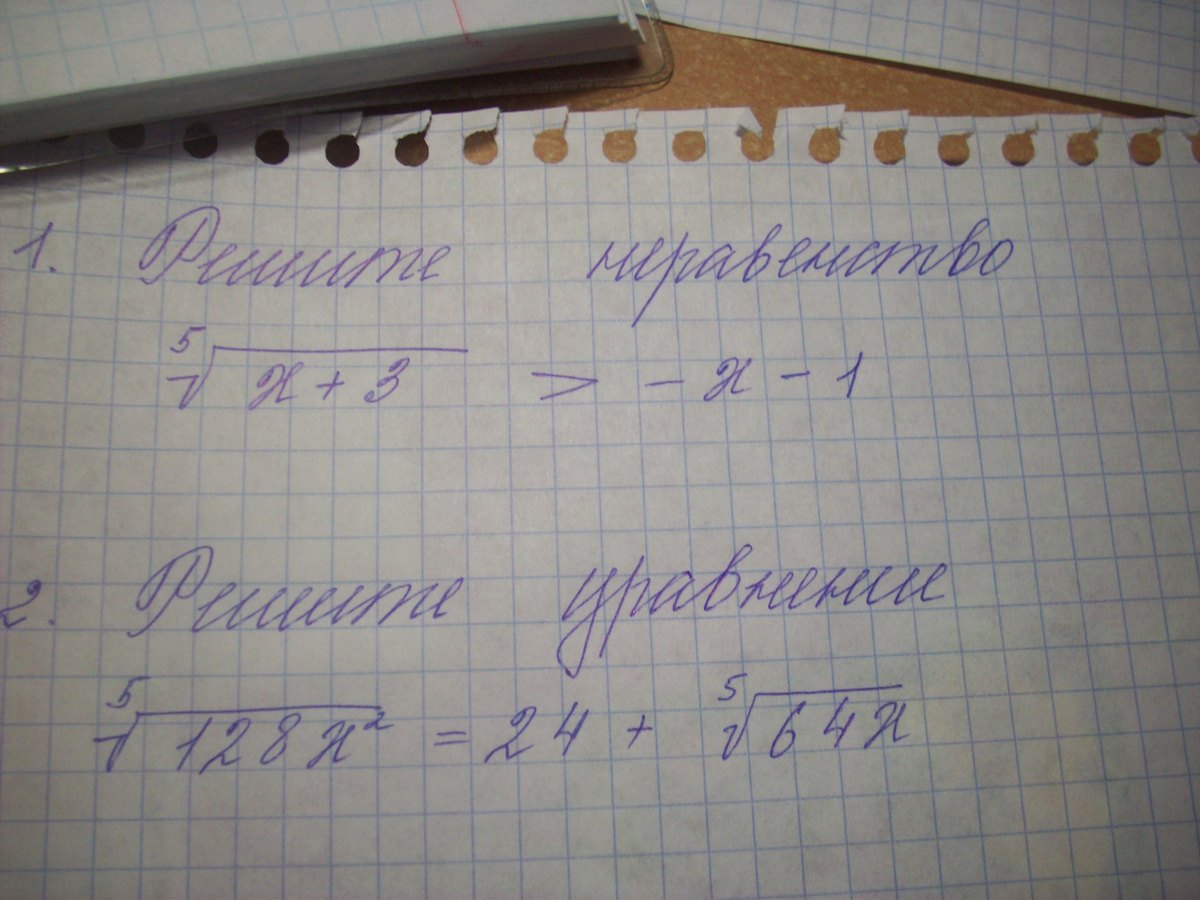 1. Решите неравенство
⁵√(x + 3) > - x - 1
2. Решите уравнение
⁵√(128x²) = 24 + ⁵√(64x)